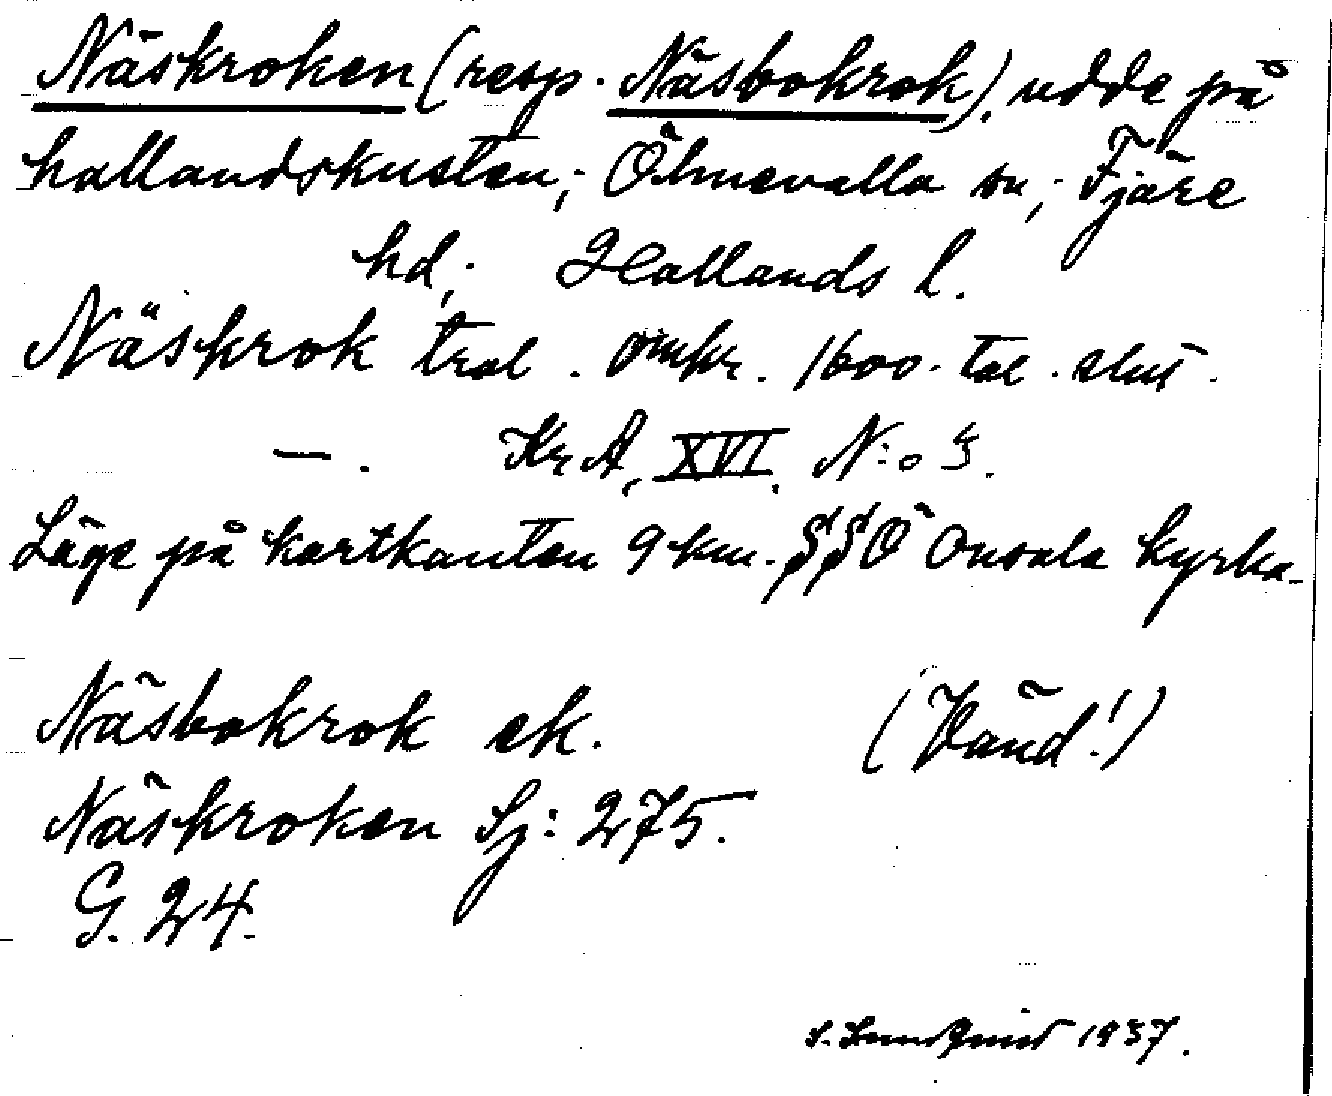 Näskroken (resp. Näsbokrok), udde på
hallandskusten; Ölmevalla sn; Fjäre
hd; Hallands l.
Näskrok tral. omkr. 1600-tal. slut.
—. Kr A, XVI, N:o 3.
Läge på kartkanten 9 km. SSÖ Onsala kyrka.
Näsbokrok ek. (Vänd!)
Näskroken Sj: 275.
G. 24.
S. Lundquist 1937.